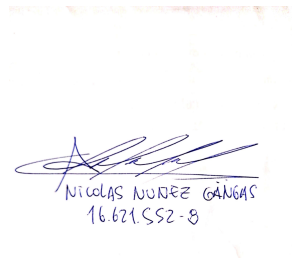 NICOLAS NUNEZ GÁNGAS
16.621.552-8